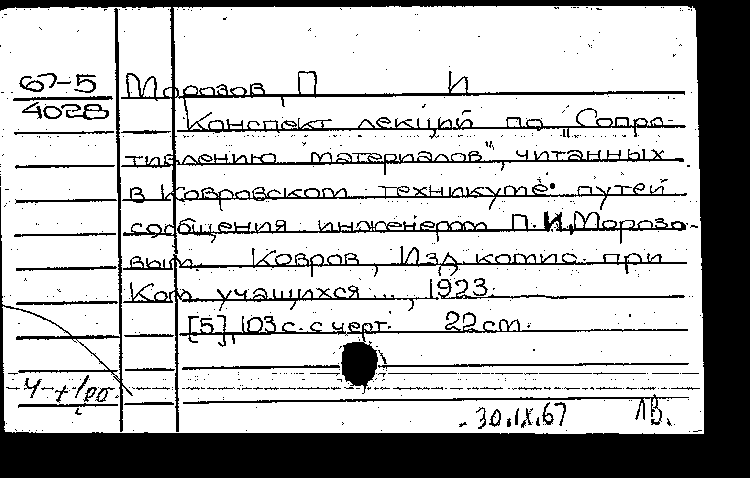 67-5 Морозов, П И
4028 Конспект лекций по „Сопро-
тивлению материалов", читанных
в Ковровском техникуме путей
сообщения инженером П.И.Морозо-
вым. Ковров, Изд. комис. при
Ком. учащихся ..., 1923.
[5], 103 с. с черт. 22 см.
30.IX.67 ЛВ.